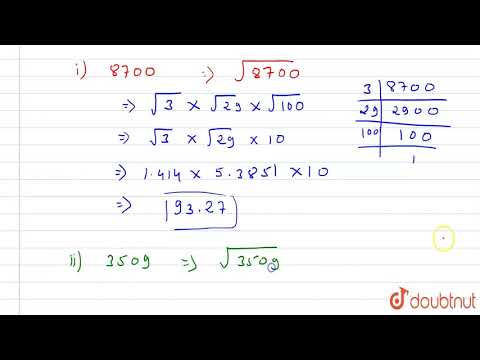 i) 8700 => √8700
=> √3 × √29 × √100
=> √3 × √29 × 10
=> 1.414 × 5.3851 × 10
=> 93.27
3 | 8700
29 | 2900
100 | 100
1
ii) 3509 => √3509
doubtnut